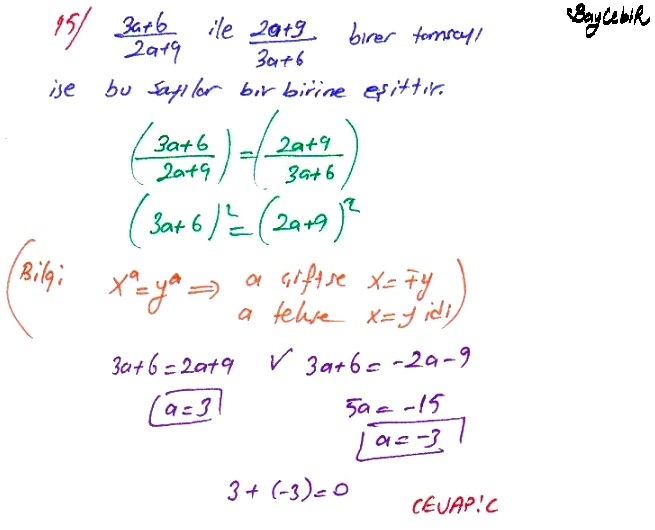 BayCebiR
15/ 3a+6/2a+9 ile 2a+9/3a+6 birer tamsayı
ise bu sayılar bir birine eşittir.
(3a+6/2a+9) = (2a+9/3a+6)
(3a+6)² = (2a+9)²
(Bilgi: xᵃ=yᵃ ⇒ a çiftse x=∓y
a tekse x=y idi)
3a+6=2a+9 ✓ 3a+6=-2a-9
a=3 5a=-15
a=-3
3+(-3)=0
CEVAP:C